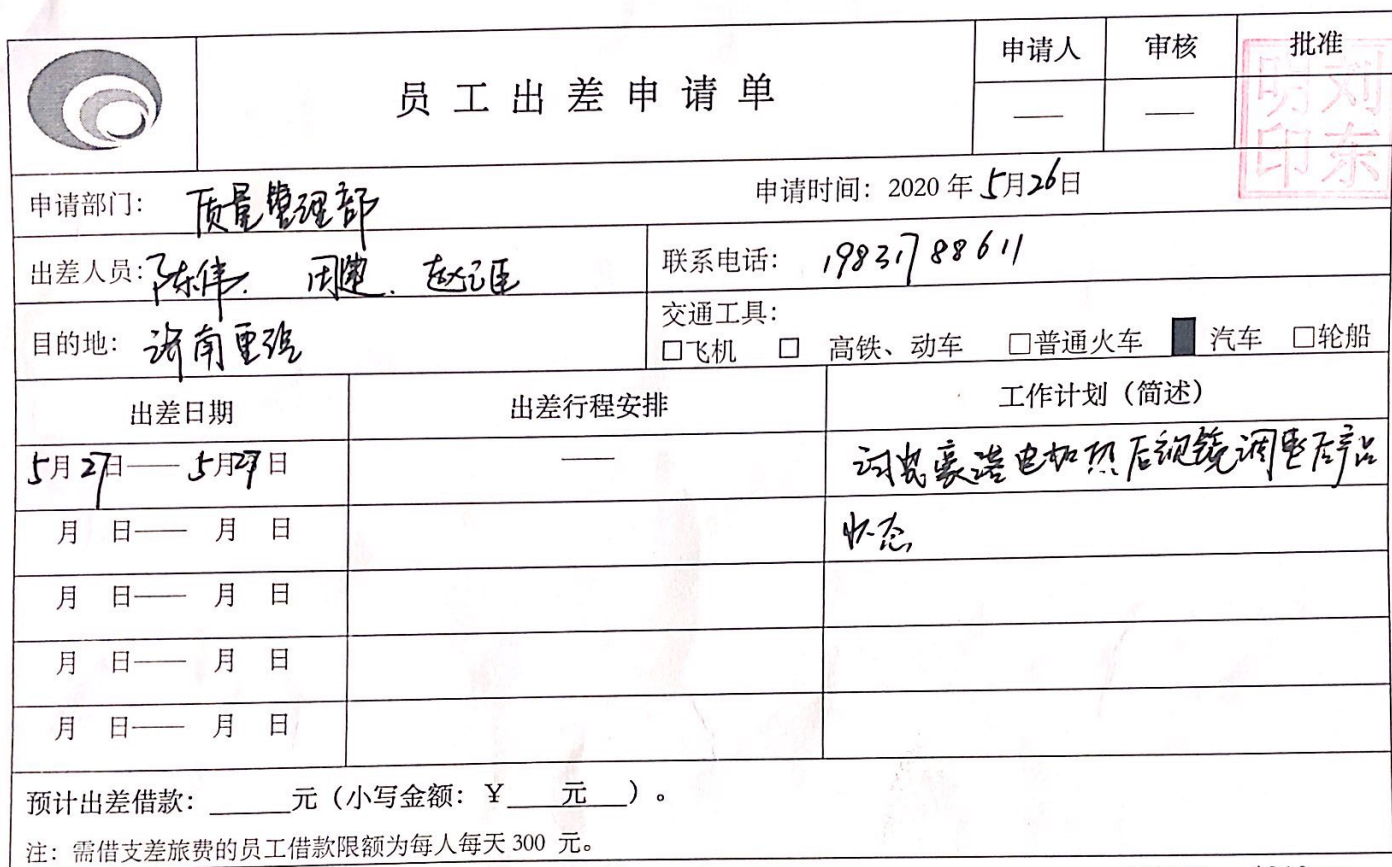 员工出差申请单
申请人 审核 批准
—— ——
刘东明印
申请部门： 质量管理部 申请时间：2020年5月26日
出差人员：陈伟、 周建、 联系电话： 19831788611
目的地：济南重汽 交通工具：
□飞机 □ 高铁、动车 □普通火车 ■ 汽车 □轮船
出差日期 出差行程安排 工作计划（简述）
5月27日—— 5月27日 —— 豪沃电加热后视镜调整后产品
月 日—— 月 日 状态
月 日—— 月 日
月 日—— 月 日
月 日—— 月 日
预计出差借款：______元（小写金额：￥____元___）。
注：需借支差旅费的员工借款限额为每人每天300 元。